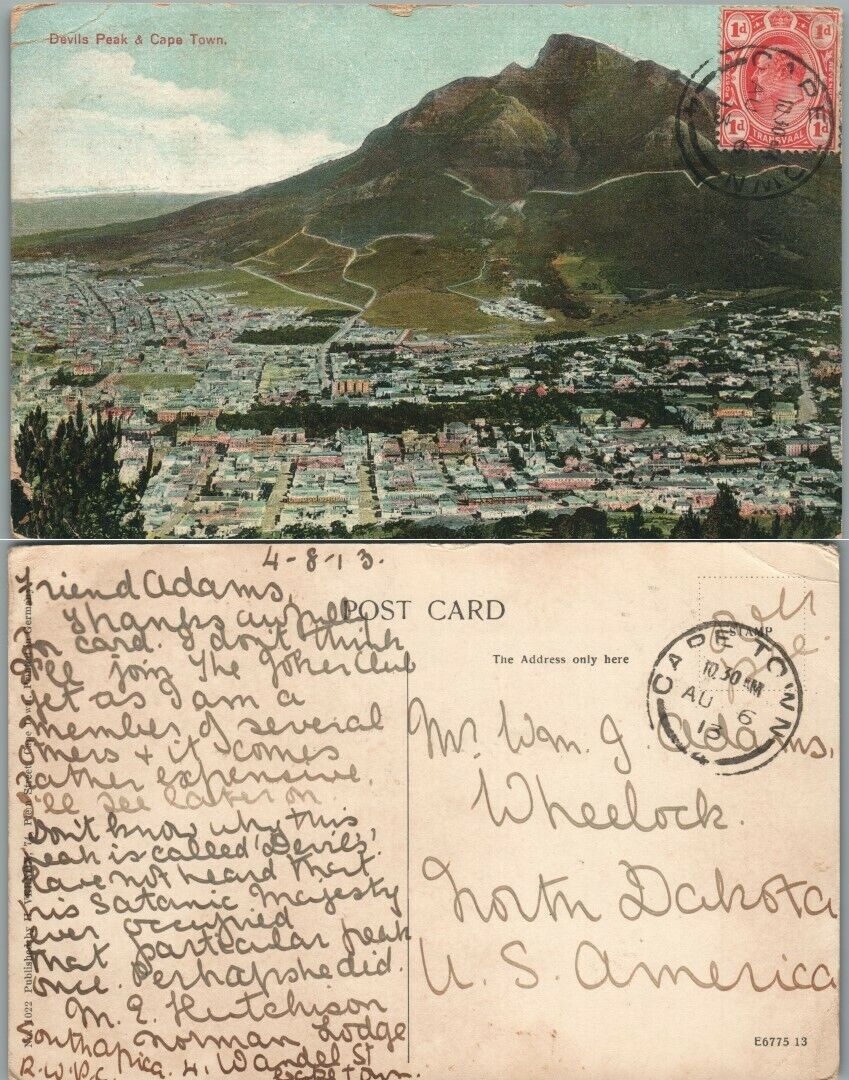 Devils Peak & Cape Town.
1d 1d
REVENUE
1d TRANSVAAL 1d
CAPE TOWN
10.30 AM
AU 6
13
4-8-13.
Friend Adams,
Thanks awfully
on card. I don't think
I'll join the Joker Club
yet as I am a
member of several
others & it comes
rather expensive.
I'll see later on.
Don't know why this
peak is called 'Devils',
have not heard that
his Satanic Majesty
ever occupied
that particular peak
once. Perhaps he did.
M. E. Hutchison
Norman Lodge
4. Wandel St
Cape Town.
South Africa.
R.W.P.C.
POST CARD
The Address only here
STAMP
CAPE TOWN
10.30 AM
AU 6
13
4
Mr. Wm. J. Adams,
Wheelock.
North Dakota
U. S. America
E6775 13
1022 Published by
Street, Cape Town.
Germany